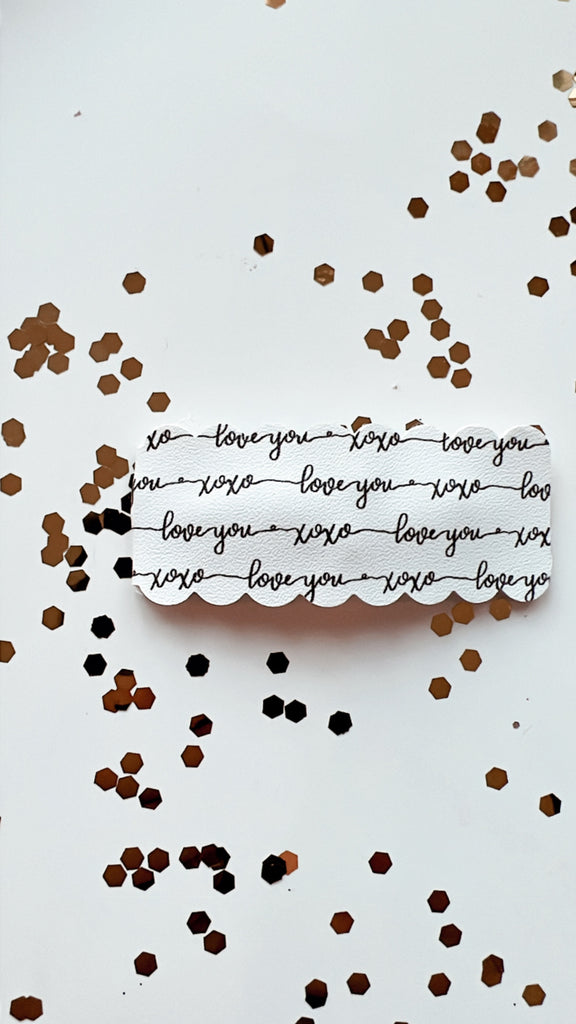 xo love you xoxo love you
you xoxo love you xoxo lov
love you xoxo love you xo
xoxo love you xoxo love yo